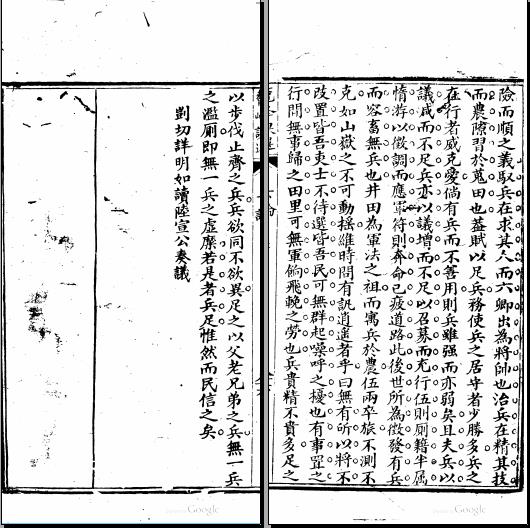 險而順之義馭兵在求其人而六卿出為將帥也治兵在精其技
而農隙習於蒐田也蓋賦以足兵務使兵之居守者少勝多兵之
在行者威克愛倘有兵而不善用則兵雖强而亦弱矣且夫兵以
議減而不足兵亦以議增而不足以召募而充行伍則廝籍半屬
情游以徵調而應軍符則奔命已疲道路此後世所為徵發有兵
而容畜無兵也井田為軍法之祖而寓兵於農伍兩卒旅不測不
克如山嶽之不可動搖維時間有訊逍遙者乎曰無有所以將不
改置皆吾吏士不待選皆吾民可無群起噪呼之擾也有事罪之
行間無事歸之田里可無軍餉飛輓之勞也兵貴精不貴多足之
以步伐止齊之兵兵欲同不欲異足之以父老兄弟之兵無一兵
之濫廁即無一兵之虛糜若是者兵足惟然而民信之矣
剴切詳明如讀陸宣公奏議
Google
Google